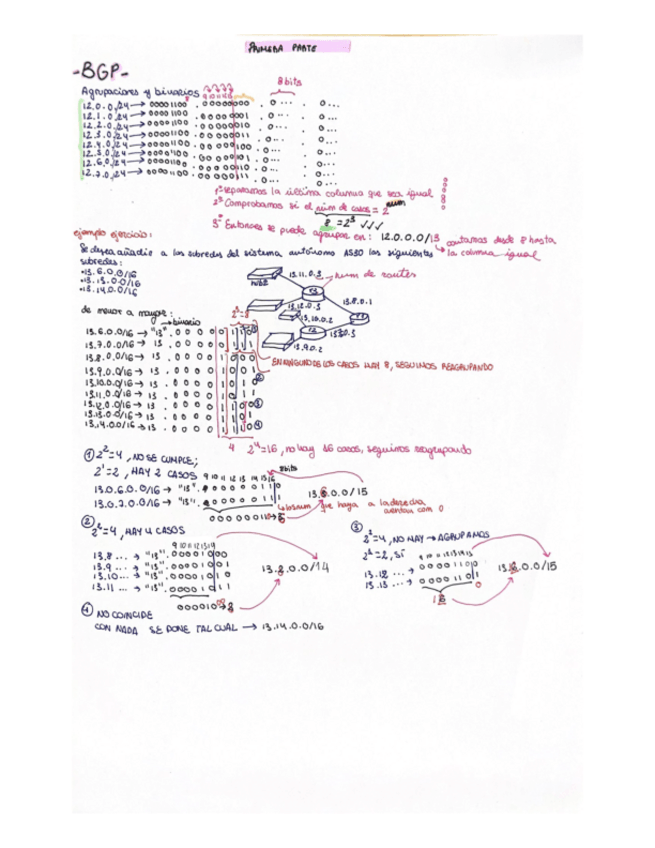 PRIMERA PARTE
-BGP-
Agrupaciones y binarios
8bits
12.0.0/24 → 00001100 . 00000000 . 0... . 0...
12.1.0/24 → 00001100 . 00000001 . 0... . 0...
12.2.0/24 → 00001100 . 00000010 . 0... . 0...
12.3.0/24 → 00001100 . 00000011 . 0... . 0...
12.4.0/24 → 00001100 . 00000100 . 0... . 0...
12.5.0/24 → 00001100 . 00000101 . 0... . 0...
12.6.0/24 → 00001100 . 00000110 . 0... . 0...
12.7.0/24 → 00001100
1º separamos la última columna que sea igual
2º Comprobamos si el núm de casos = 2^num
8 = 2^3 ✓✓✓
3º Entonces se puede agrupar en: 12.0.0.0/13 contamos desde 8 hasta
la columna igual
ejemplo ejercicio:
Se desea añadir a las subredes del sistema autónomo AS30 las siguientes
subredes:
•13.6.0.0/16
•13.13.0.0/16
•13.14.0.0/16
13.11.0.3
num de routes
13.8.0.1
13.12.0.3
13.10.0.2
13.9.0.2
de menor a mayor:
→binario
2^3=8
13.6.0.0/16 → "13" . 0 0 0 0 0 1 1 0
13.7.0.0/16 → 13 . 0 0 0 0 0 1 1 1
13.8.0.0/16 → 13 . 0 0 0 0 1 0 0 0
EN NINGUNO DE LOS CASOS HAY 8, SEGUIMOS REAGRUPANDO
13.9.0.0/16 → 13 . 0 0 0 0 1 0 0 1
13.10.0.0/16 → 13 . 0 0 0 0 1 0 1 0
13.11.0.0/16 → 13 . 0 0 0 0 1 0 1 1
13.12.0.0/16 → 13 . 0 0 0 0 1 1 0 0
13.13.0.0/16 → 13 . 0 0 0 0 1 1 0 1
13.14.0.0/16 → 13 . 0 0 0 0 1 1 1 0
4 2^4=16, no hay 16 casos, seguimos reagrupando
① 2^2=4, NO SE CUMPLE;
2^1=2, HAY 2 CASOS
9 10 11 12 13 14 15 16
8bits
13.0.6.0.0/16 → "13". 0 0 0 0 0 1 1 0
13.0.7.0.0/16 → "13". 0 0 0 0 0 1 1 1
13.6.0.0/15
que haya a la derecha
cuentan com 0
② 2^2=4, HAY 4 CASOS
9 10 11 12 13 14
13.8 ... → "13". 0 0 0 0 1 0 0 0
13.9 ... → "13". 0 0 0 0 1 0 0 1
13.10 ... → "13". 0 0 0 0 1 0 1 0
13.11 ... → "13". 0 0 0 0 1 0 1 1
00001000 → 8
13.8.0.0/14
③
2^2=4, NO HAY → AGRUPAMOS
2^1=2, SÍ
13.12 ... →
13.13 ... →
13.12.0.0/15
④ NO COINCIDE
CON NADA SE PONE TAL CUAL → 13.14.0.0/16